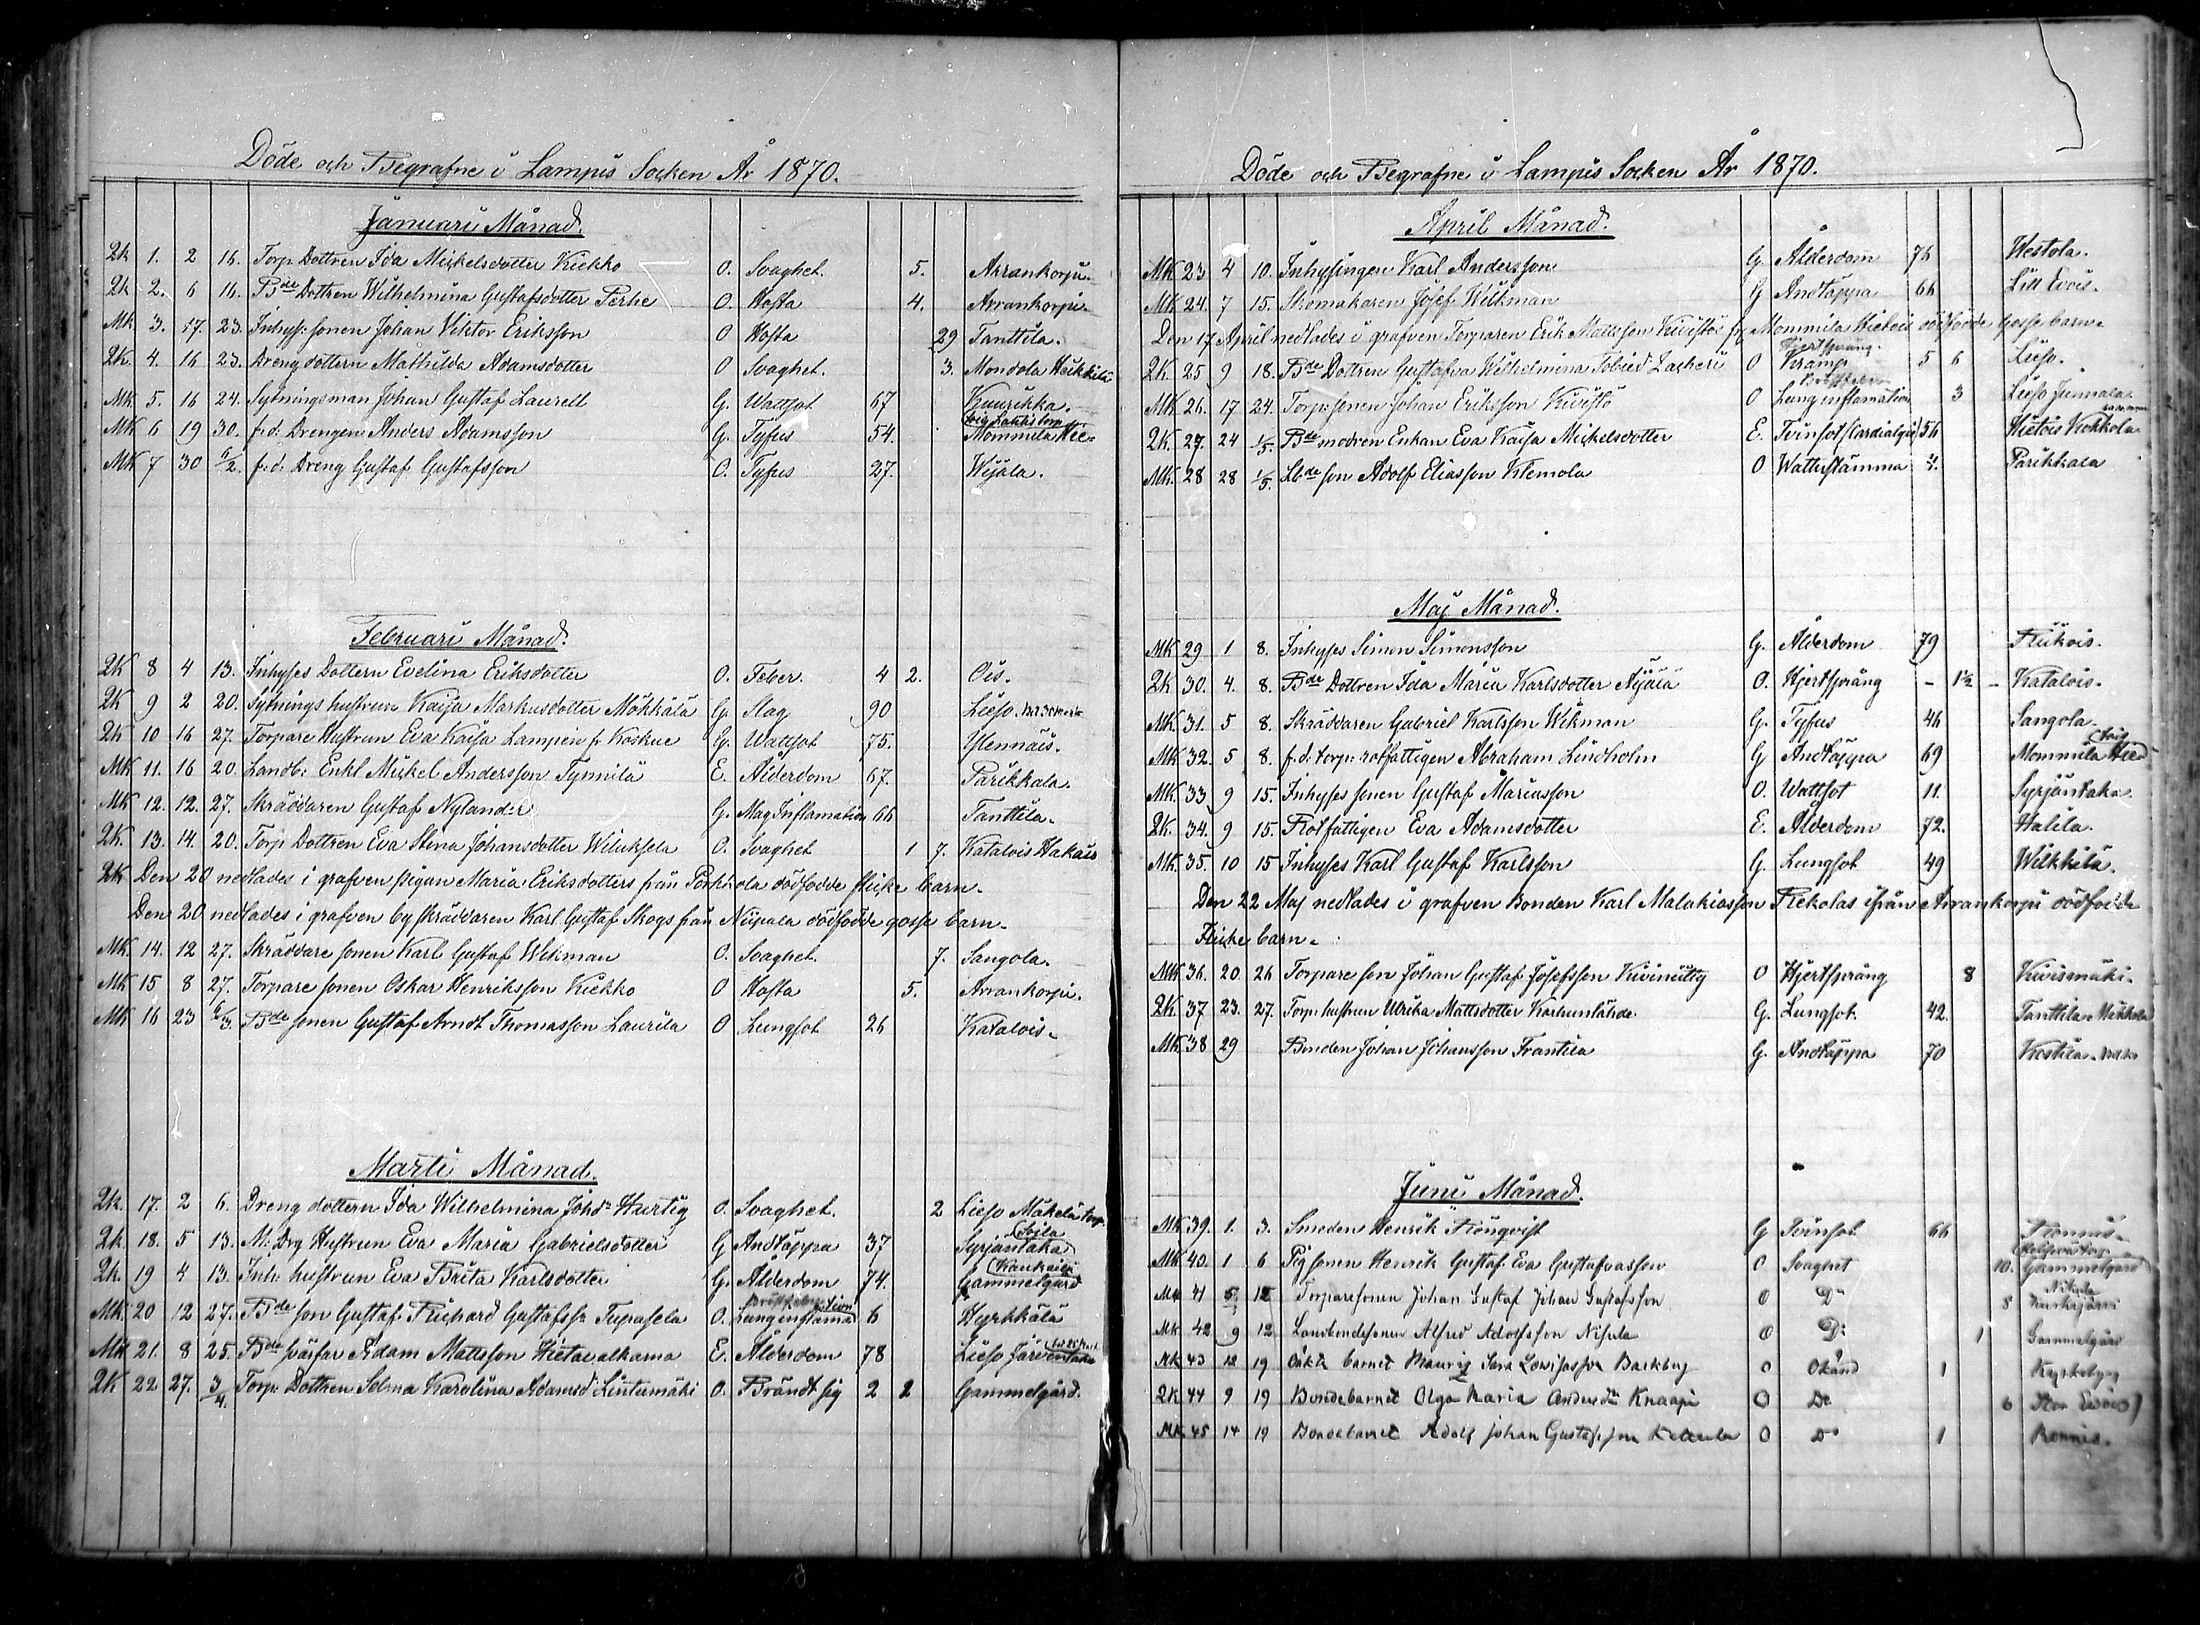 Döde och Begrafne i Lampis Socken År 1870.
Januari Månad.
Qk 1. 2 16. Torp. Dottren Ida Mickelsdotter Kiekko O. Svaghet. 5. Arrankorpi.
Qk 2. 6 16. Bde Dottren Wilhelmina Gustafsdotter Perhe O. Hosta 4. Arrankorpi.
Mk 3. 17. 23. Inhyses sonen Johan Viktor Eriksson O Hosta 29 Tanttila.
Qk. 4. 16 23. Dreng dottern Mathilda Adamsdotter O Svaghet. 3. Mondola Heikkilä
Mk. 5. 16 24. Sytningsman Johan Gustaf Laurell G. Wattsot 67 Kuurikka.
Mk 6 19 30. f.d. Drengen Anders Adamsson G. Tyfus 54. Mommila
Mk 7 30 6/2. f.d. Dreng Gustaf Gustafsson O. Tyfus 27.
Februari Månad.
Qk 8 4 13. Inhyses Dottern Evelina Eriksdotter O. Feber 4 2. Ois.
Qk 9 2 20. Sytnings hustrun Kaisa Markusdotter Mökkälä G. Slag 90 Lieso.
Qk 10 16 27. Torpare Hustrun Eva Kaisa Lampen f. Koskue G. Wattsot 75.
Mk 11. 16 20. Landb: Enkl Mickel Andersson Tynnilä E. Ålderdom 67. Parikkala.
Mk 12. 12. 27. Skräddaren Gustaf Nylander G. Mag Inflamation 66 Tanttila.
Qk. 13. 14. 20. Torp Dottren Eva Stina Johansdotter O. Svaghet 1 7. Katalois Hakais
Qk Den 20 nedlades i grafven pigan Maria Eriksdotters från dödfödde flicke barn.
Den 20 nedlades i grafven by skräddaren Karl Gustaf Skogs från Nipala dödfödde gosse barn.
Mk. 14. 12 27. Skräddare sonen Karl Gustaf Wikman O. Svaghet. 7. Sangola.
Mk 15 8 27. Torpare sonen Oskar Henriksson Kiekko O Hosta 5. Arrankorpi.
Mk 16 23 6/3. Bde sonen Gustaf Arndt Thomasson Laurila O Lungsot 26 Katalois.
Marti Månad.
Qk. 17. 2 6. Dreng dottern Ida Wilhelmina Johdr Hurtig O. Svaghet. 2 Lieso Mäkelä torp.
Qk 18. 5 13. M: Drg Hustrun Eva Maria Gabrielsdotter G Andtäppa 37 Syrjäntaka
Qk. 19 4 13. Inh: hustrun Eva Brita Karlsdotter G. Ålderdom 74. Gammelgård
Mk 20 12 27. Bde son Gustaf Richard Gustafssn Tupasela O. Lunginflamation 6 Hyrkkälä
Mk 21. 8 25. Bde Adam Mattsson E. Ålderdom 78 Lieso Järventaka
Qk 22 27. 3/4. Torp. Dottren Selma Karolina Adamsd Lintumäki O. Brändt sig 2 2 Gammelgård.
Döde och Begrafne i Lampis Socken År 1870.
April Månad.
Mk 23 4 10. Inhysingen Karl Andersson G. Ålderdom 76 Westola.
Mk 24. 7 15. Skomakaren Josef Wikman G Andtäppa 66 Lill Evois.
Den 17 April nedlades i grafven Torparen Erik Mattsson Kivistös fr. Mommila Hietois dödfödde gosse barn.
Qk 25 9 18. Bde Dottren Gustafva Wilhelmina Tobied Zacheri O Kramp Hjertspräng. 5 6 Lieso.
Mk 26. 17 24. Torp: sonen Johan Eriksson Kivistö O Lunginflamation 3 Lieso Junnala.
Qk. 27. 24 1/5. Bde modren Enkan Eva Kaisa Mickelsdotter E. Tvinsot (Cardialgie) 56 Hietois Kokkola
Mk. 28 28 1/5. Lbde son Adolf Eliasson Klemola O Wattustämma 4. Parikkala
Maj Månad.
Mk 29 1 8. Inhyses Simon Simonsson G. Ålderdom 79
Qk 30. 4. 8. Bde Dottren Ida Maria Karlsdotter Äijälä O. Hjertspräng - 1½ - Katalois.
Mk. 31. 5 8. Skräddaren Gabriel Karlsson Wikman G. Tyfus 46 Sangola.
Mk 32. 5 8. f.d. torp: rotfattigen Abraham Lindholm G Andtäppa 69 Mommila
Mk 33 9 15. Inhyses sonen Gustaf Mariasson O. Wattsot 11. Syrjäntaka.
Qk. 34. 9 15. Rotfattigen Eva Adamsdotter E. Ålderdom 72. Halila.
Mk. 35. 10 15 Inhyses Karl Gustaf Karlsson G. Lungsot 49 Wilkkilä.
Den 22 Maj nedlades i grafven Bonden Karl Malakiasson Rekolas ifrån Arrankorpi dödfödde
Flicke barn.
Mk 36. 20. 26 Torpare son Johan Gustaf Josefsson O Hjertspräng 8 Kivismäki.
Qk. 37 23. 27. Torp: hustrun Ulrika Mattsdotter Karhunlähde. G. Lungsot. 42. Tanttila Mäkkola
Mk 38 29 Bonden Johan Johansson Frantila G. Andtäppa 70 Kestila.
Juni Månad.
Mk 39. 1. 3. Smeden Henrik Rönqvist G Tvinsot 66 Ronnis.
Mk 40. 1 6 Pig sonen Henrik Gustaf Eva Gustafvasson O Svaghet 10. Gammelgård
Mk 41 5 12 Torparesonen Johan Gustaf Johan Gustafsson O Do 8
Mk 42 9 12 Landbondesonen Alfred Adolfsson Nipala O Do 1 Gammelgård
Mk 43 12 19 Oäkta barnet Mauritz Sara Lovisasson Backberg O Okänd 1
Qk 44 9 19 Bondebarnet Olga Maria Andersdr Knaapi O Do 6 Stor Evois
Mk 45 14 19 Bondebarnet Adolf Johan Gustafsson O Do 1 Ronnis.